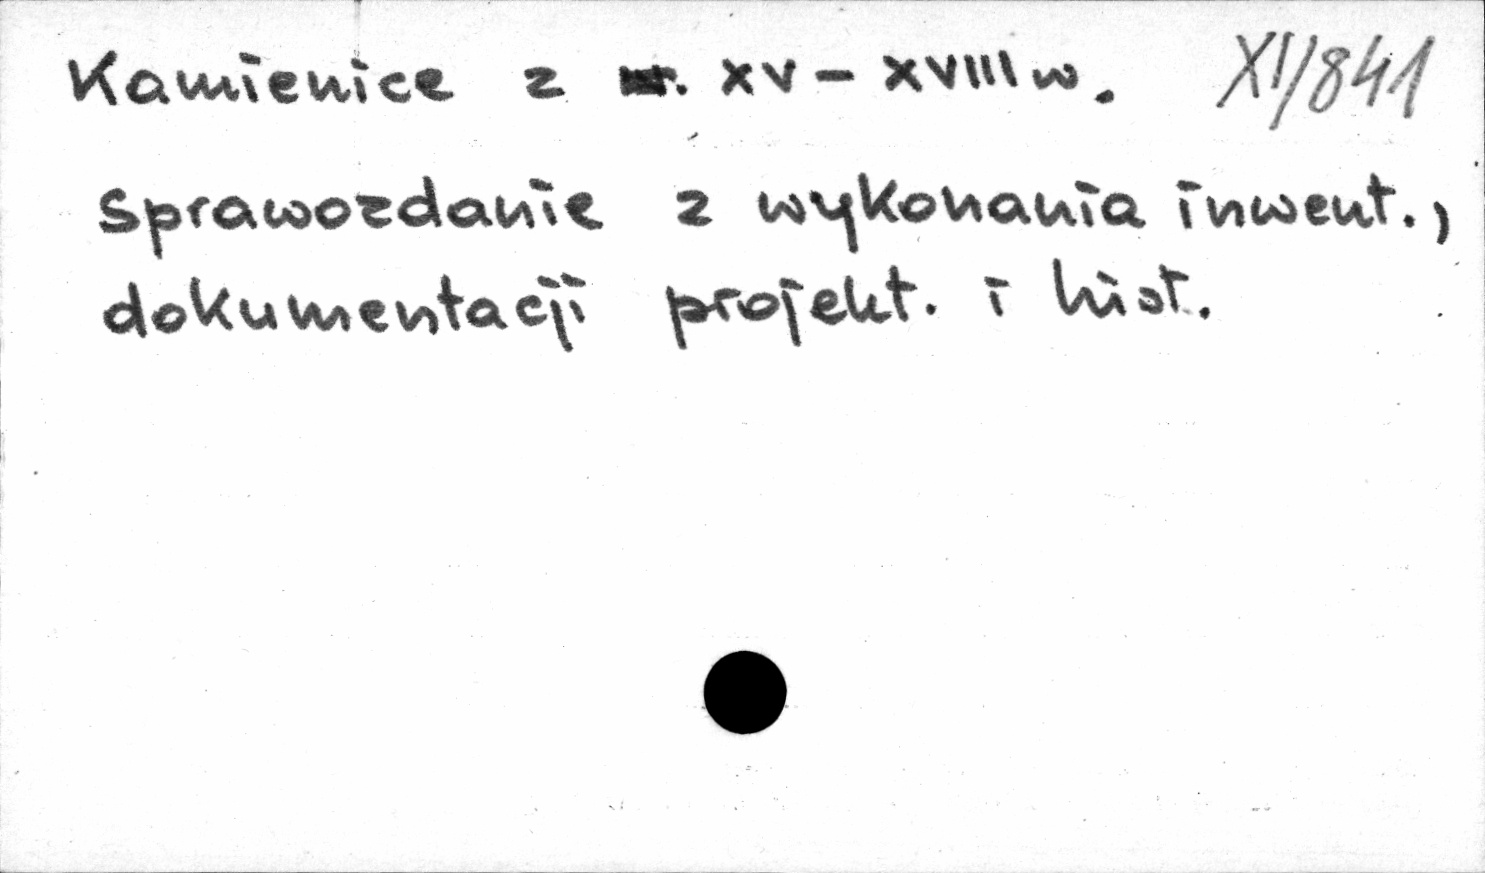 Kamienice z XV – XVIII w. XI/841
Sprawozdanie z wykonania inwent.,
dokumentacji projekt. i hist.